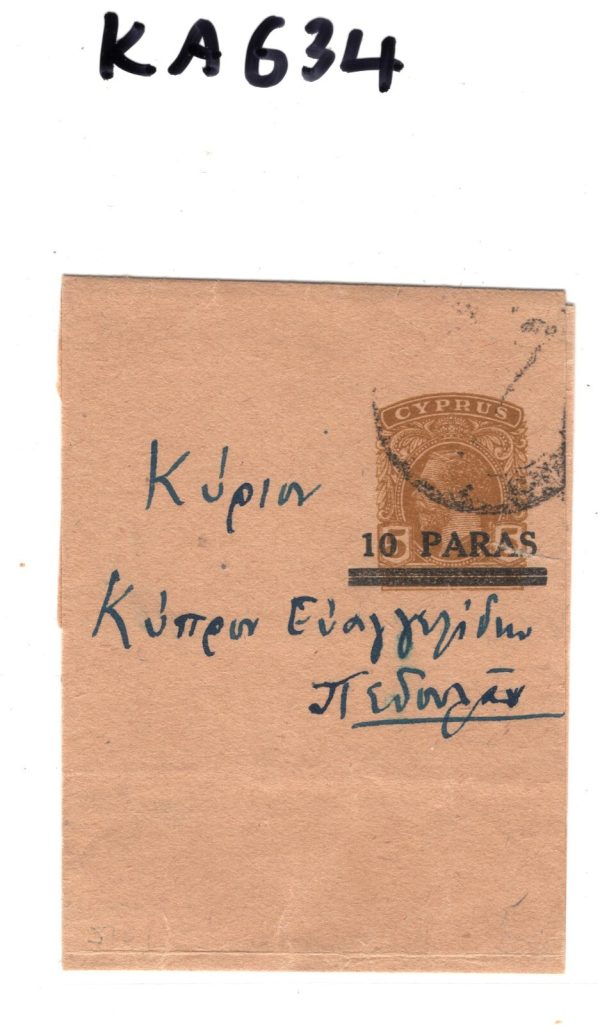 KA634
CYPRUS
5 5
10 PARAS
Κύριον
Κύπρον Εὐαγγελίδην
Πεδουλᾶν